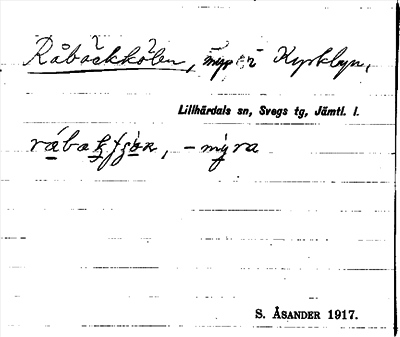 Råbäckkölen, myr i Kyrkbyn,
Lillhärdals sn, Svegs tg, Jämtl. l.
– myra
S. ÅSANDER 1917.